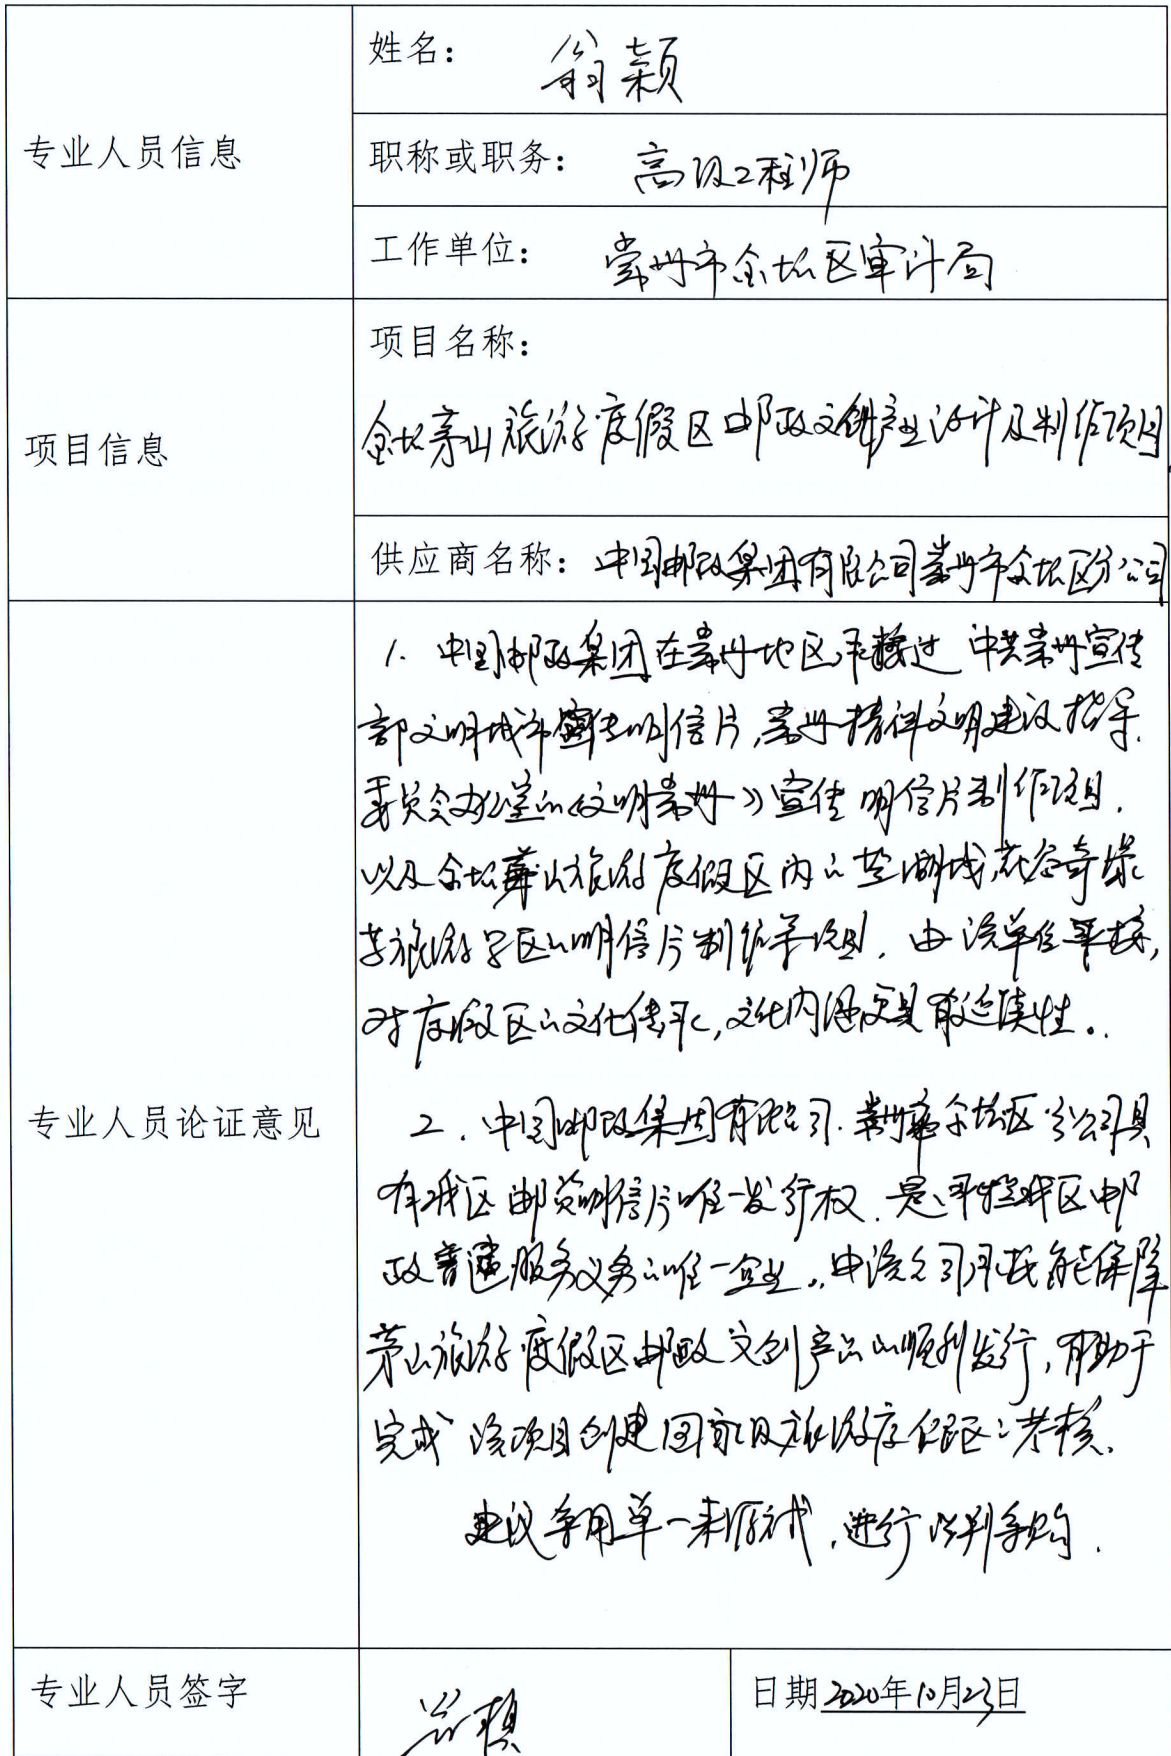 姓名： 翁颖
专业人员信息
职称或职务： 高级工程师
工作单位： 常州市金坛区审计局
项目名称：
金坛茅山旅游度假区邮政文创产业设计及制作项目
项目信息
供应商名称：中国邮政集团有限公司常州市金坛区分公司
1. 中国邮政集团在常州地区承接过 中共常州宣传
部文明城市宣传明信片，常州精神文明建设指导
委员会办公室的《文明常州》宣传明信片制作项目，
以及金坛茅山旅游度假区内的盐湖城，花谷奇缘
等旅游景区的明信片制作等项目，由该单位承接，
对度假区的文化传承，文化内涵更具有延续性。
专业人员论证意见
2. 中国邮政集团有限公司常州市金坛区分公司具
有我区邮资明信片唯一发行权，是承担我区邮
政普遍服务义务的唯一企业，由该公司承接能保障
茅山旅游度假区邮政文创产品的顺利发行，有助于
完成该项目创建国家级旅游度假区的考核。
建议采用单一来源方式，进行谈判采购．
专业人员签字
翁颖
日期 2020年10月23日